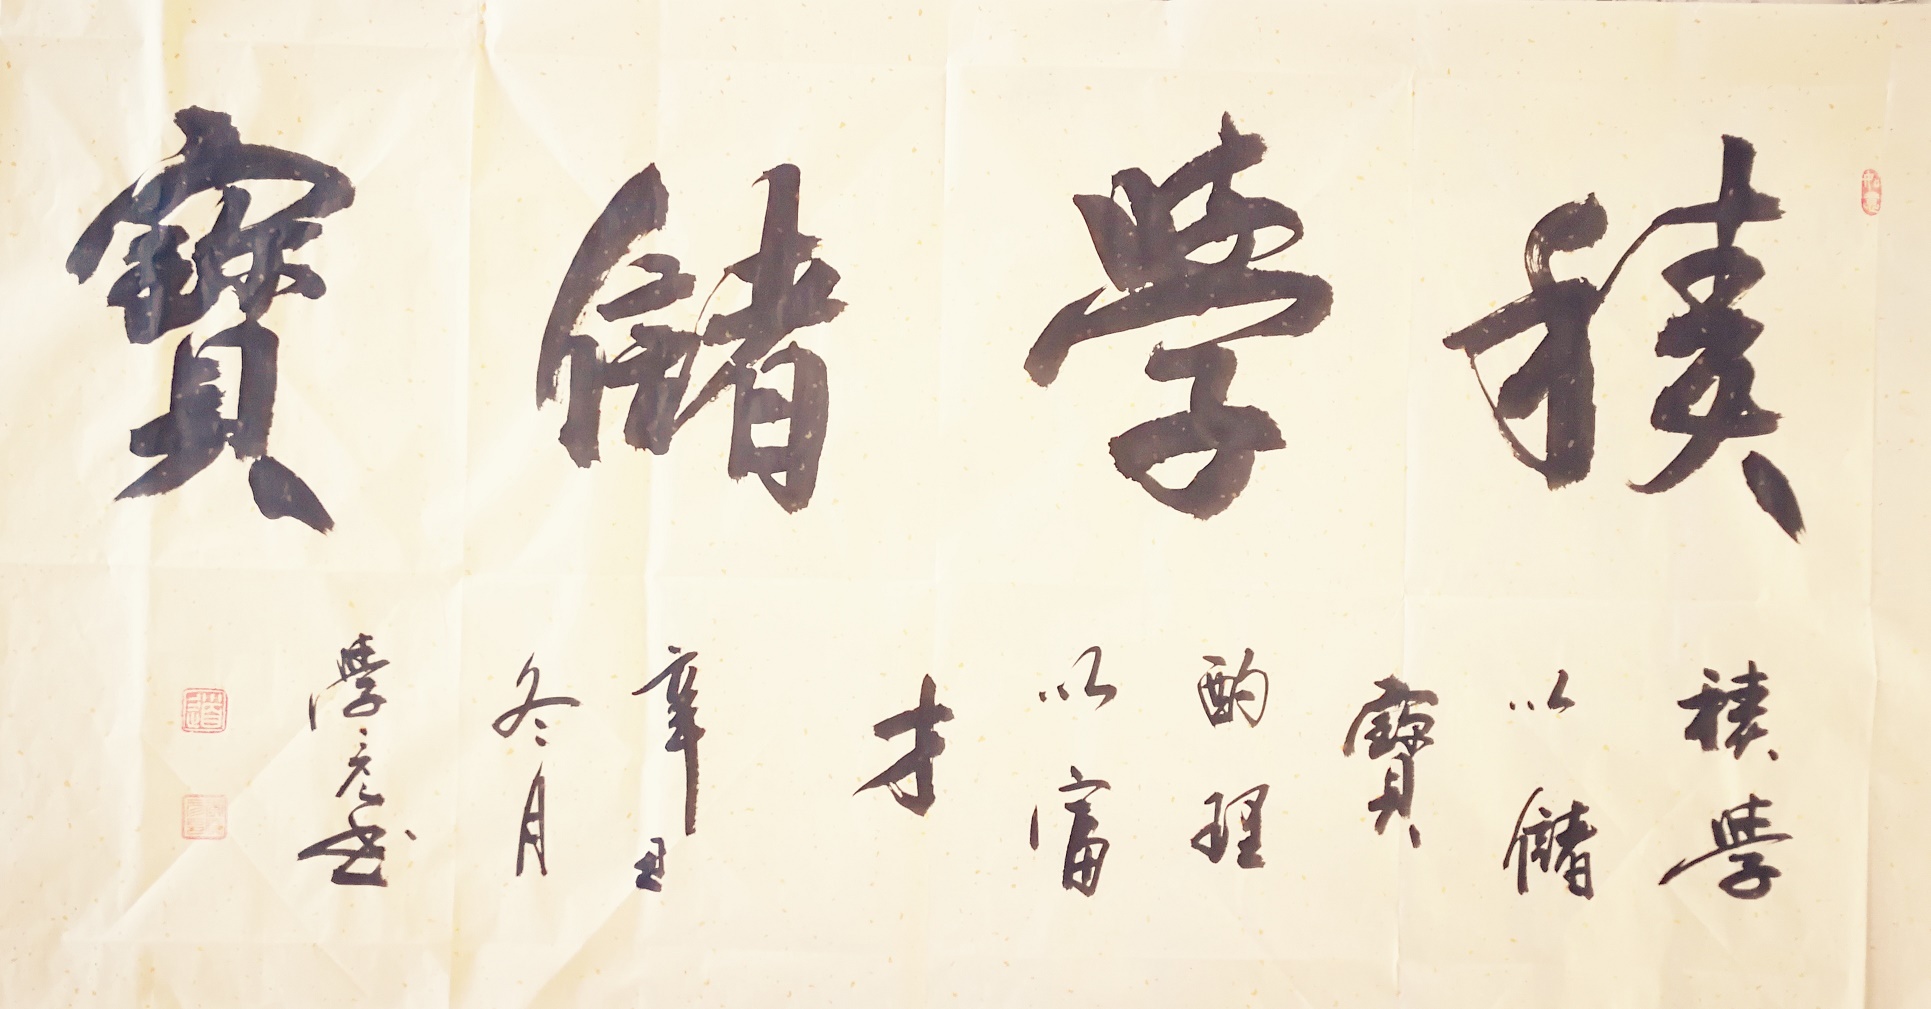 積學儲寶
積學
以儲
寶
酌理
以富
才
辛丑
冬月
學亮書